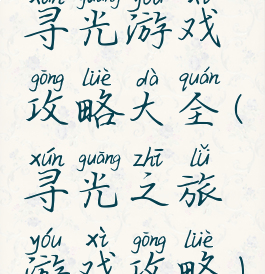 xún guāng yóu xì
寻光游戏
gōng lüè dà quán
攻略大全(
xún guāng zhī lǚ
寻光之旅
yóu xì gōng lüè
游戏攻略)